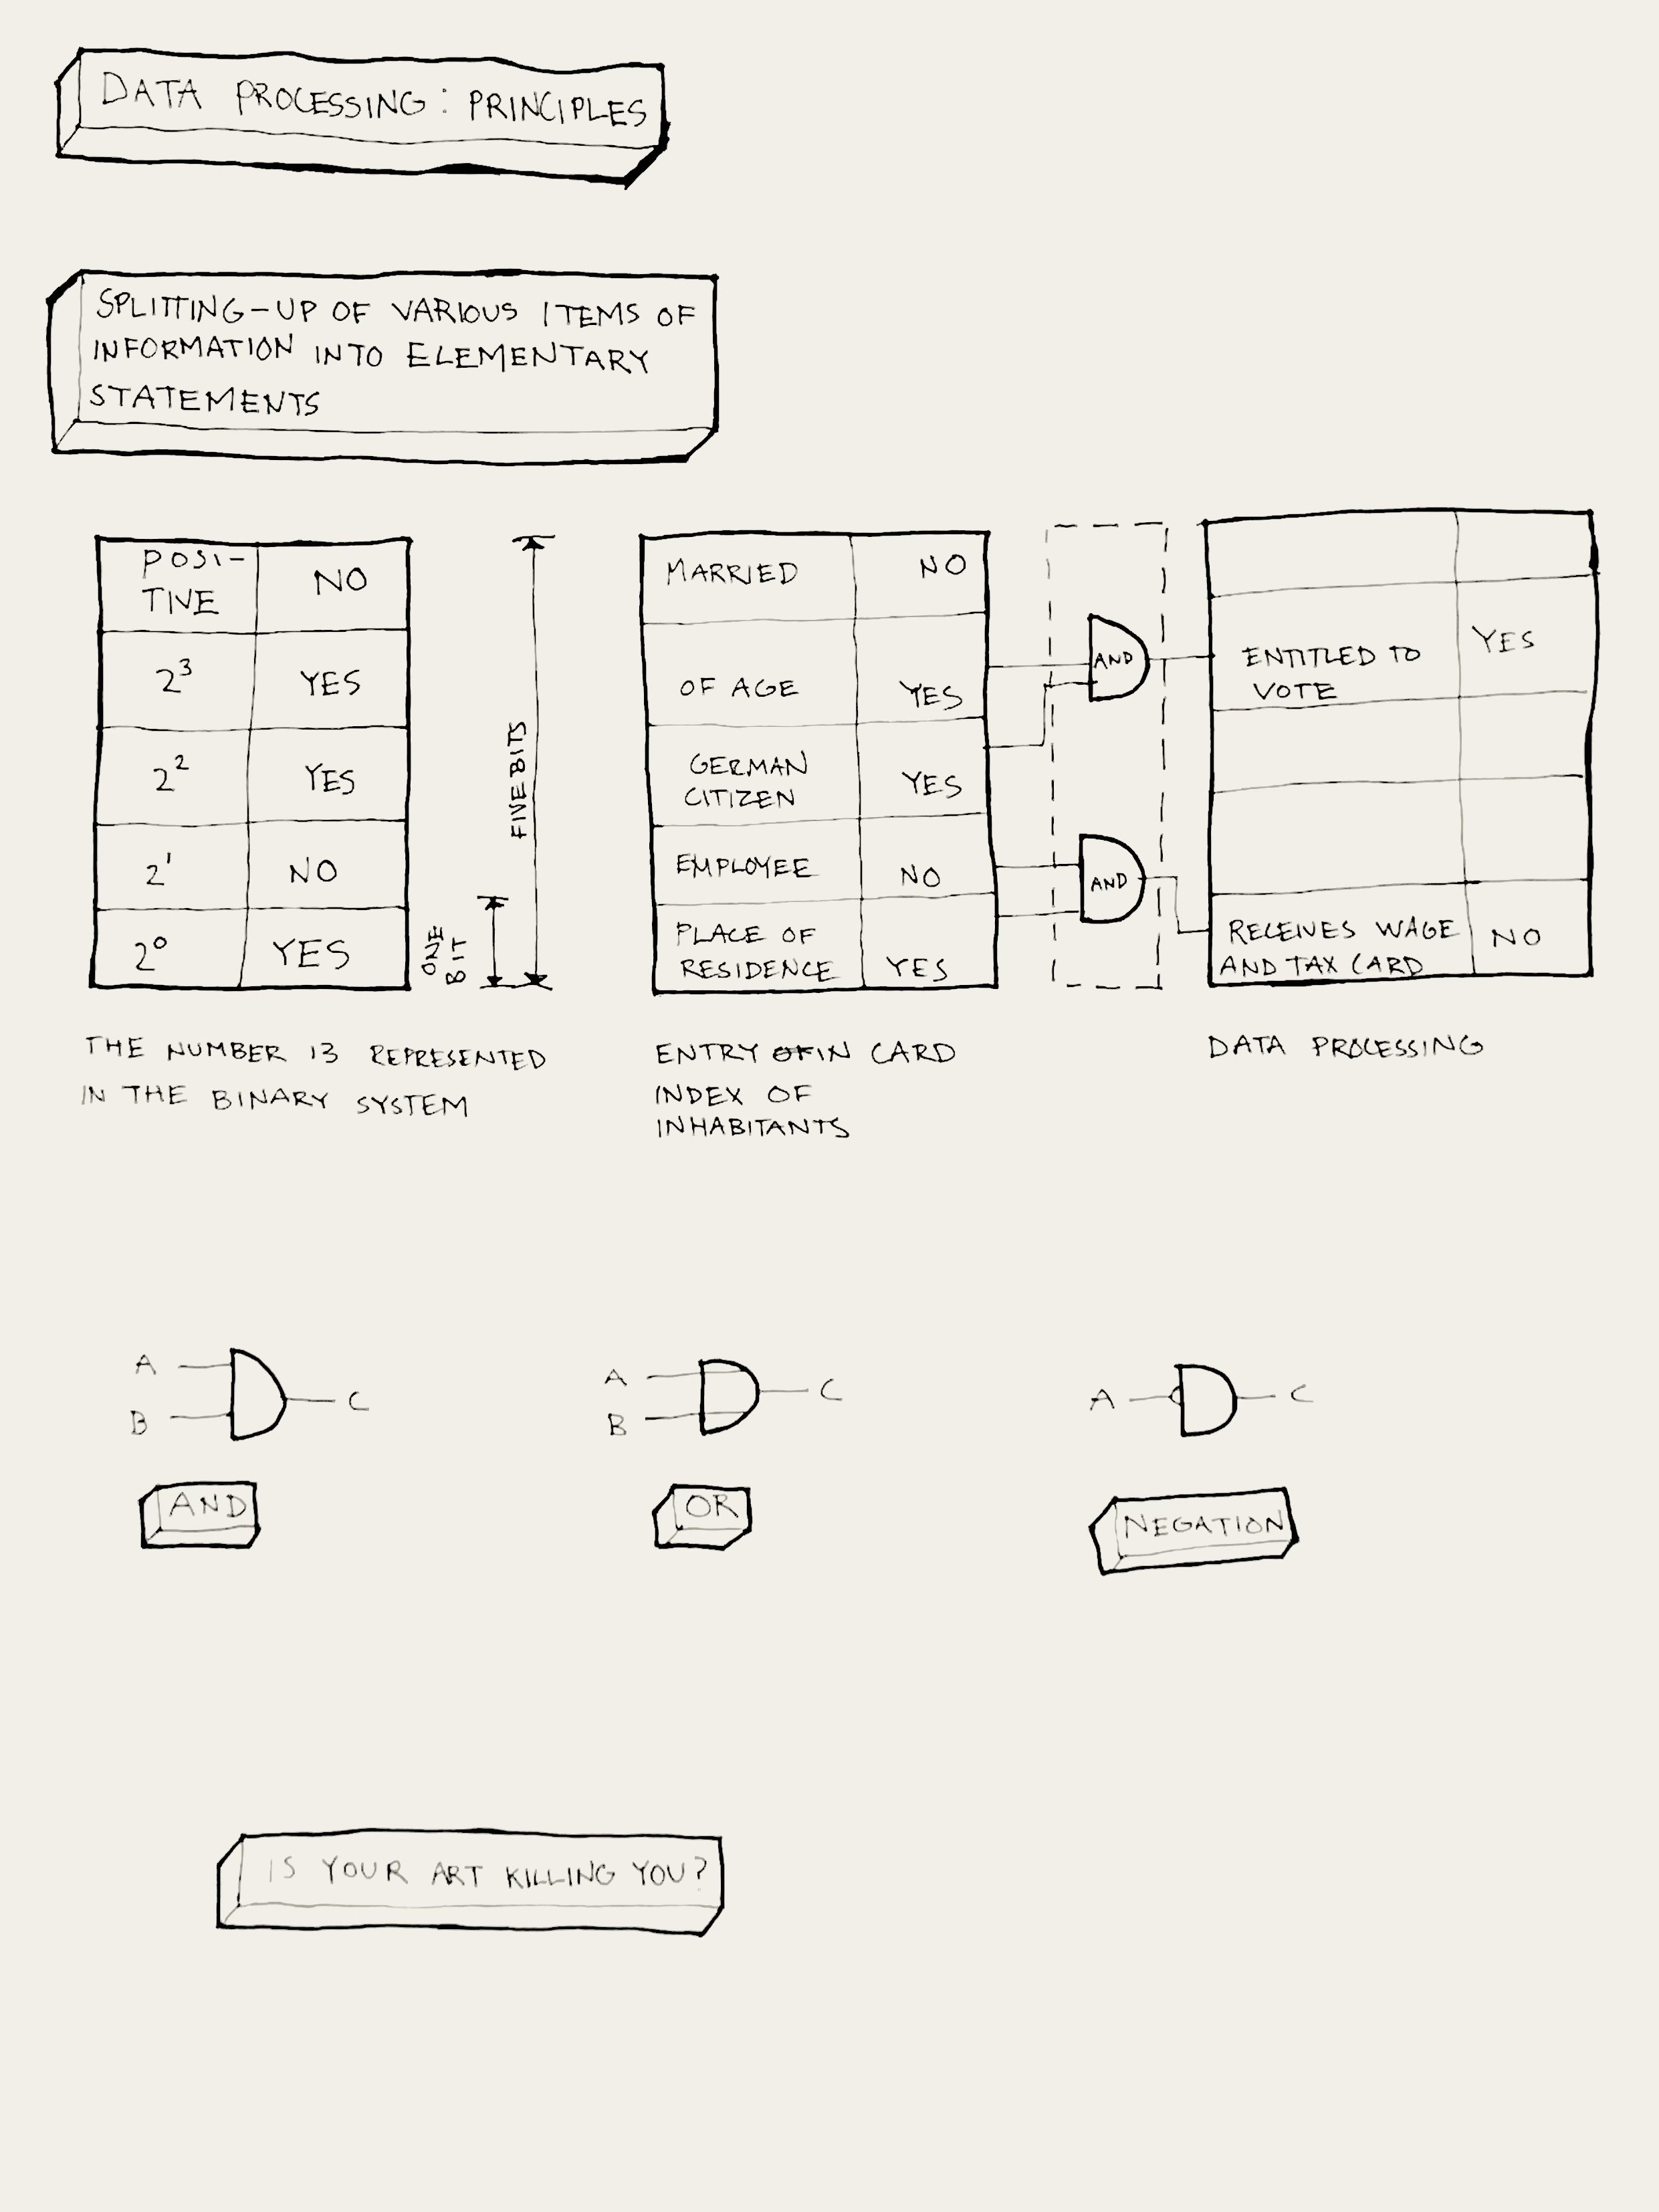 DATA PROCESSING: PRINCIPLES
SPLITTING-UP OF VARIOUS ITEMS OF
INFORMATION INTO ELEMENTARY
STATEMENTS
POSI-
TIVE
NO
2³
YES
2²
YES
2¹
NO
2⁰
YES
ONE
BIT
FIVE BITS
THE NUMBER 13 REPRESENTED
IN THE BINARY SYSTEM
MARRIED
NO
OF AGE
YES
GERMAN
CITIZEN
YES
EMPLOYEE
NO
PLACE OF
RESIDENCE
YES
ENTRY OF IN CARD
INDEX OF
INHABITANTS
AND
AND
ENTITLED TO
VOTE
YES
RECEIVES WAGE
AND TAX CARD
NO
DATA PROCESSING
A
B
C
AND
A
B
C
OR
A
C
NEGATION
IS YOUR ART KILLING YOU?